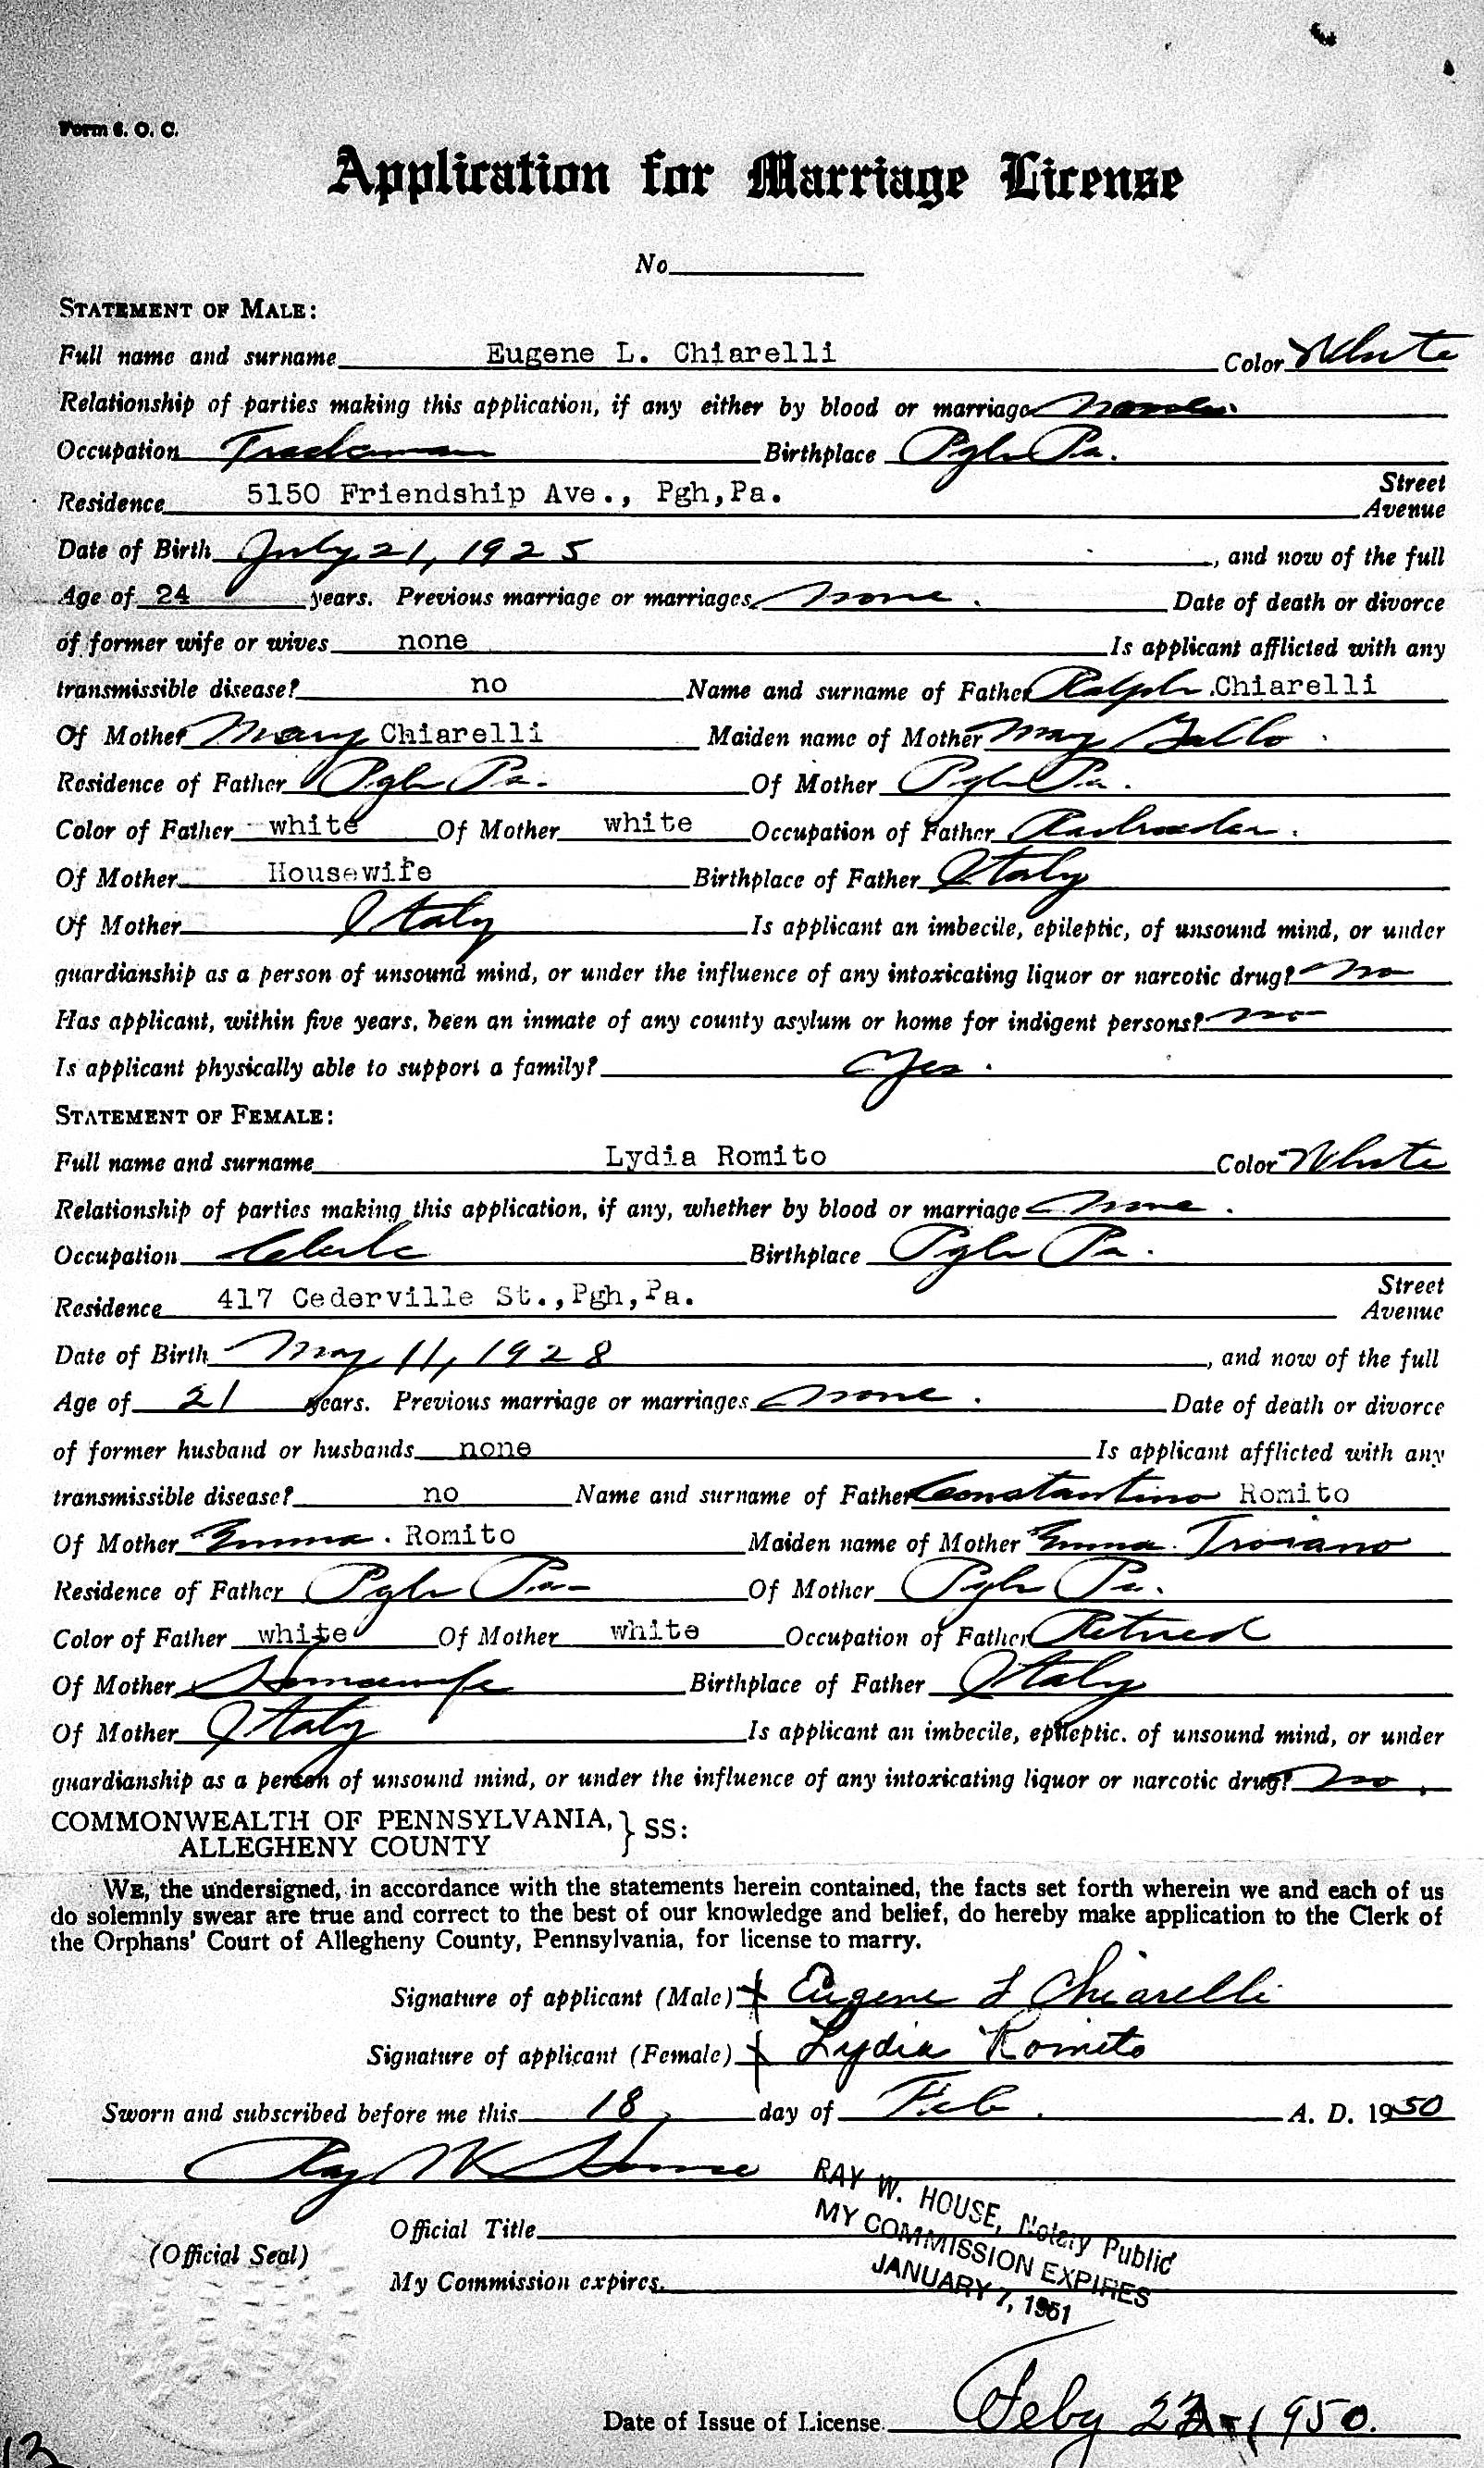 Form 6. O. C.
Application for Marriage License
No.
STATEMENT OF MALE:
Full name and surname Eugene L. Chiarelli Color White
Relationship of parties making this application, if any either by blood or marriage none
Occupation Trackman Birthplace Pgh Pa.
Residence 5150 Friendship Ave., Pgh,Pa. Street
Avenue
Date of Birth July 21, 1925, and now of the full
Age of 24 years. Previous marriage or marriages none. Date of death or divorce
of former wife or wives none Is applicant afflicted with any
transmissible disease? no Name and surname of Father Ralph Chiarelli
Of Mother Mary Chiarelli Maiden name of Mother May Gallo
Residence of Father Pgh Pa. Of Mother Pgh Pa.
Color of Father white Of Mother white Occupation of Father Railroader.
Of Mother Housewife Birthplace of Father Italy
Of Mother Italy Is applicant an imbecile, epileptic, of unsound mind, or under
guardianship as a person of unsound mind, or under the influence of any intoxicating liquor or narcotic drug? no
Has applicant, within five years, been an inmate of any county asylum or home for indigent persons? no
Is applicant physically able to support a family? Yes.
STATEMENT OF FEMALE:
Full name and surname Lydia Romito Color White
Relationship of parties making this application, if any, whether by blood or marriage none.
Occupation Clerk Birthplace Pgh Pa.
Residence 417 Cederville St.,Pgh,Pa. Street
Avenue
Date of Birth May 11, 1928, and now of the full
Age of 21 years. Previous marriage or marriages none. Date of death or divorce
of former husband or husbands none Is applicant afflicted with any
transmissible disease? no Name and surname of Father Constantino Romito
Of Mother Emma. Romito Maiden name of Mother Emma. Troiano
Residence of Father Pgh Pa. Of Mother Pgh Pa.
Color of Father white Of Mother white Occupation of Father Retired
Of Mother Housewife Birthplace of Father Italy
Of Mother Italy Is applicant an imbecile, epileptic. of unsound mind, or under
guardianship as a person of unsound mind, or under the influence of any intoxicating liquor or narcotic drug? no.
COMMONWEALTH OF PENNSYLVANIA,
ALLEGHENY COUNTY } SS:
WE, the undersigned, in accordance with the statements herein contained, the facts set forth wherein we and each of us
do solemnly swear are true and correct to the best of our knowledge and belief, do hereby make application to the Clerk of
the Orphans' Court of Allegheny County, Pennsylvania, for license to marry.
Signature of applicant (Male) Eugene L Chiarelli
Signature of applicant (Female) Lydia Romito
Sworn and subscribed before me this 18, day of Feb. A. D. 1950
Ray W House
RAY W. HOUSE, Notary Public
MY COMMISSION EXPIRES
JANUARY 7, 1951
Official Title
(Official Seal)
My Commission expires.
Date of Issue of License Feby 1950.
13